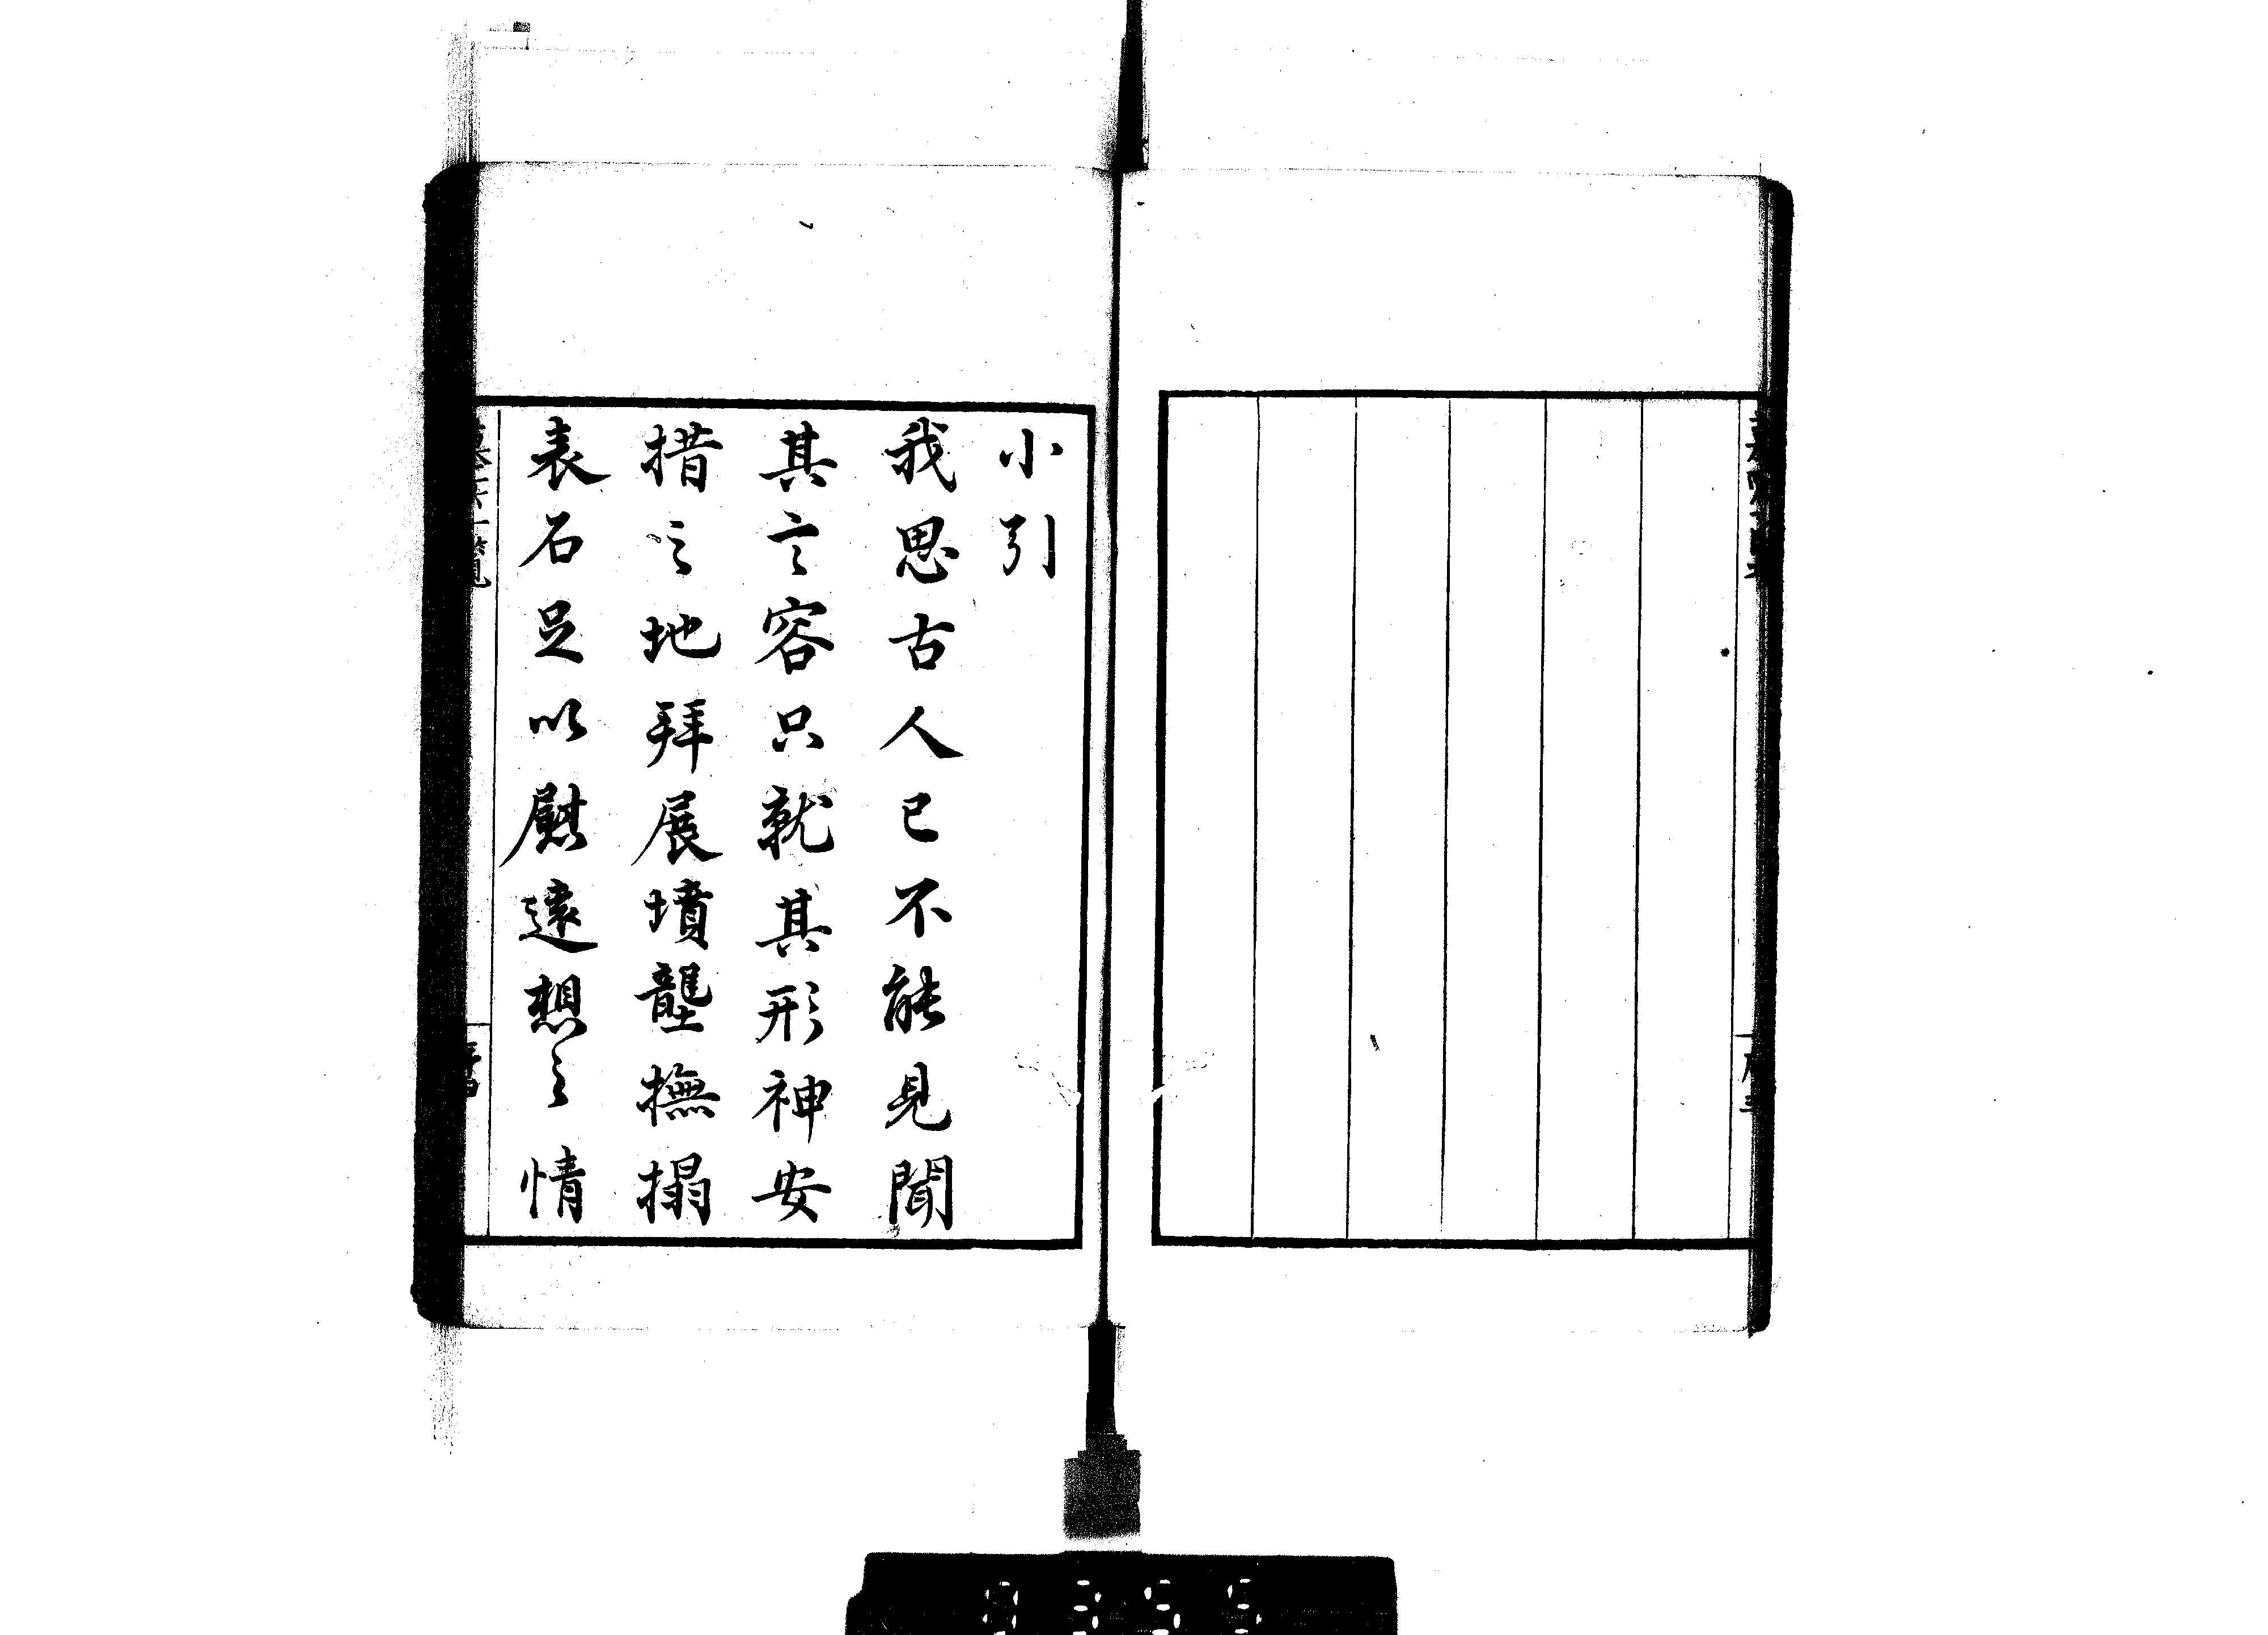 小引
我思古人已不能見聞
其言容只就其形神安
措之地拜展墳壟撫搨
表石足以慰遠想之情